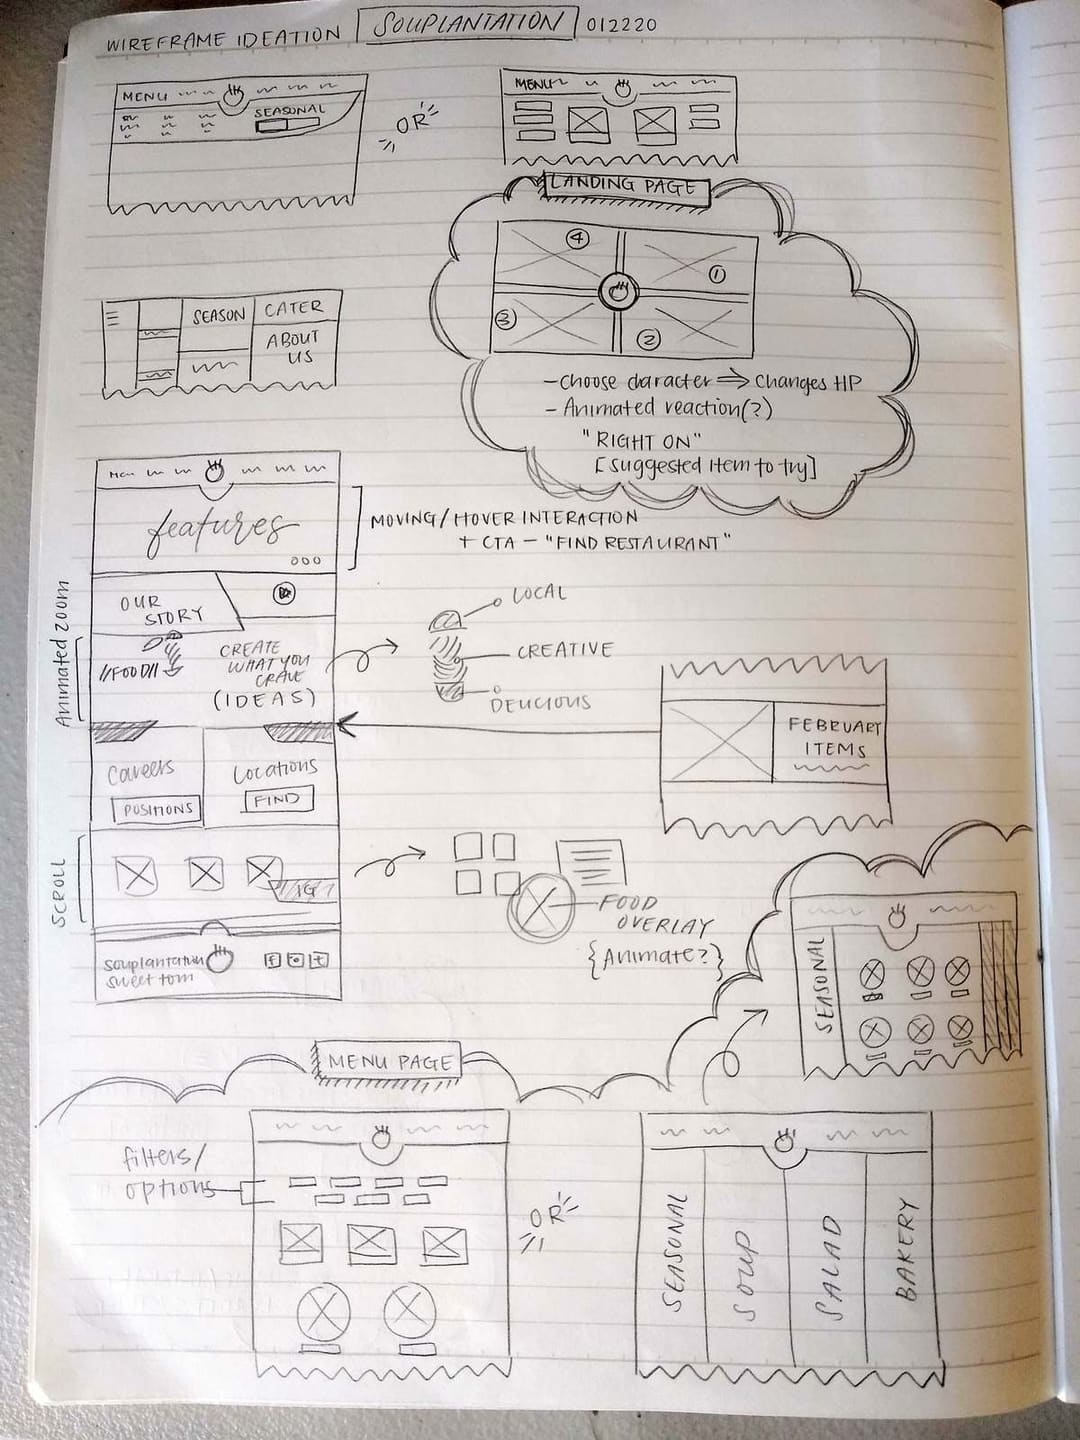 WIREFRAME IDEATION SOUPLANTATION 012220
MENU
SEASONAL
OR
MENU
LANDING PAGE
4
1
3
2
- Choose character ⇒ Changes HP
- Animated reaction(?)
"RIGHT ON"
[suggested item to try]
SEASON
CATER
ABOUT
US
Men
features
MOVING/HOVER INTERACTION
+ CTA - "FIND RESTAURANT"
OUR
STORY
Animated zoom
//FOOD//
CREATE
WHAT YOU
CRAVE
(IDEAS)
LOCAL
CREATIVE
DELICIOUS
FEBRUARY
ITEMS
Careers
POSITIONS
Locations
FIND
SCROLL
IG
FOOD
OVERLAY
{Animate?}
souplantation
sweet tom
f
t
SEASONAL
MENU PAGE
filters/
options
OR
SEASONAL
SOUP
SALAD
BAKERY